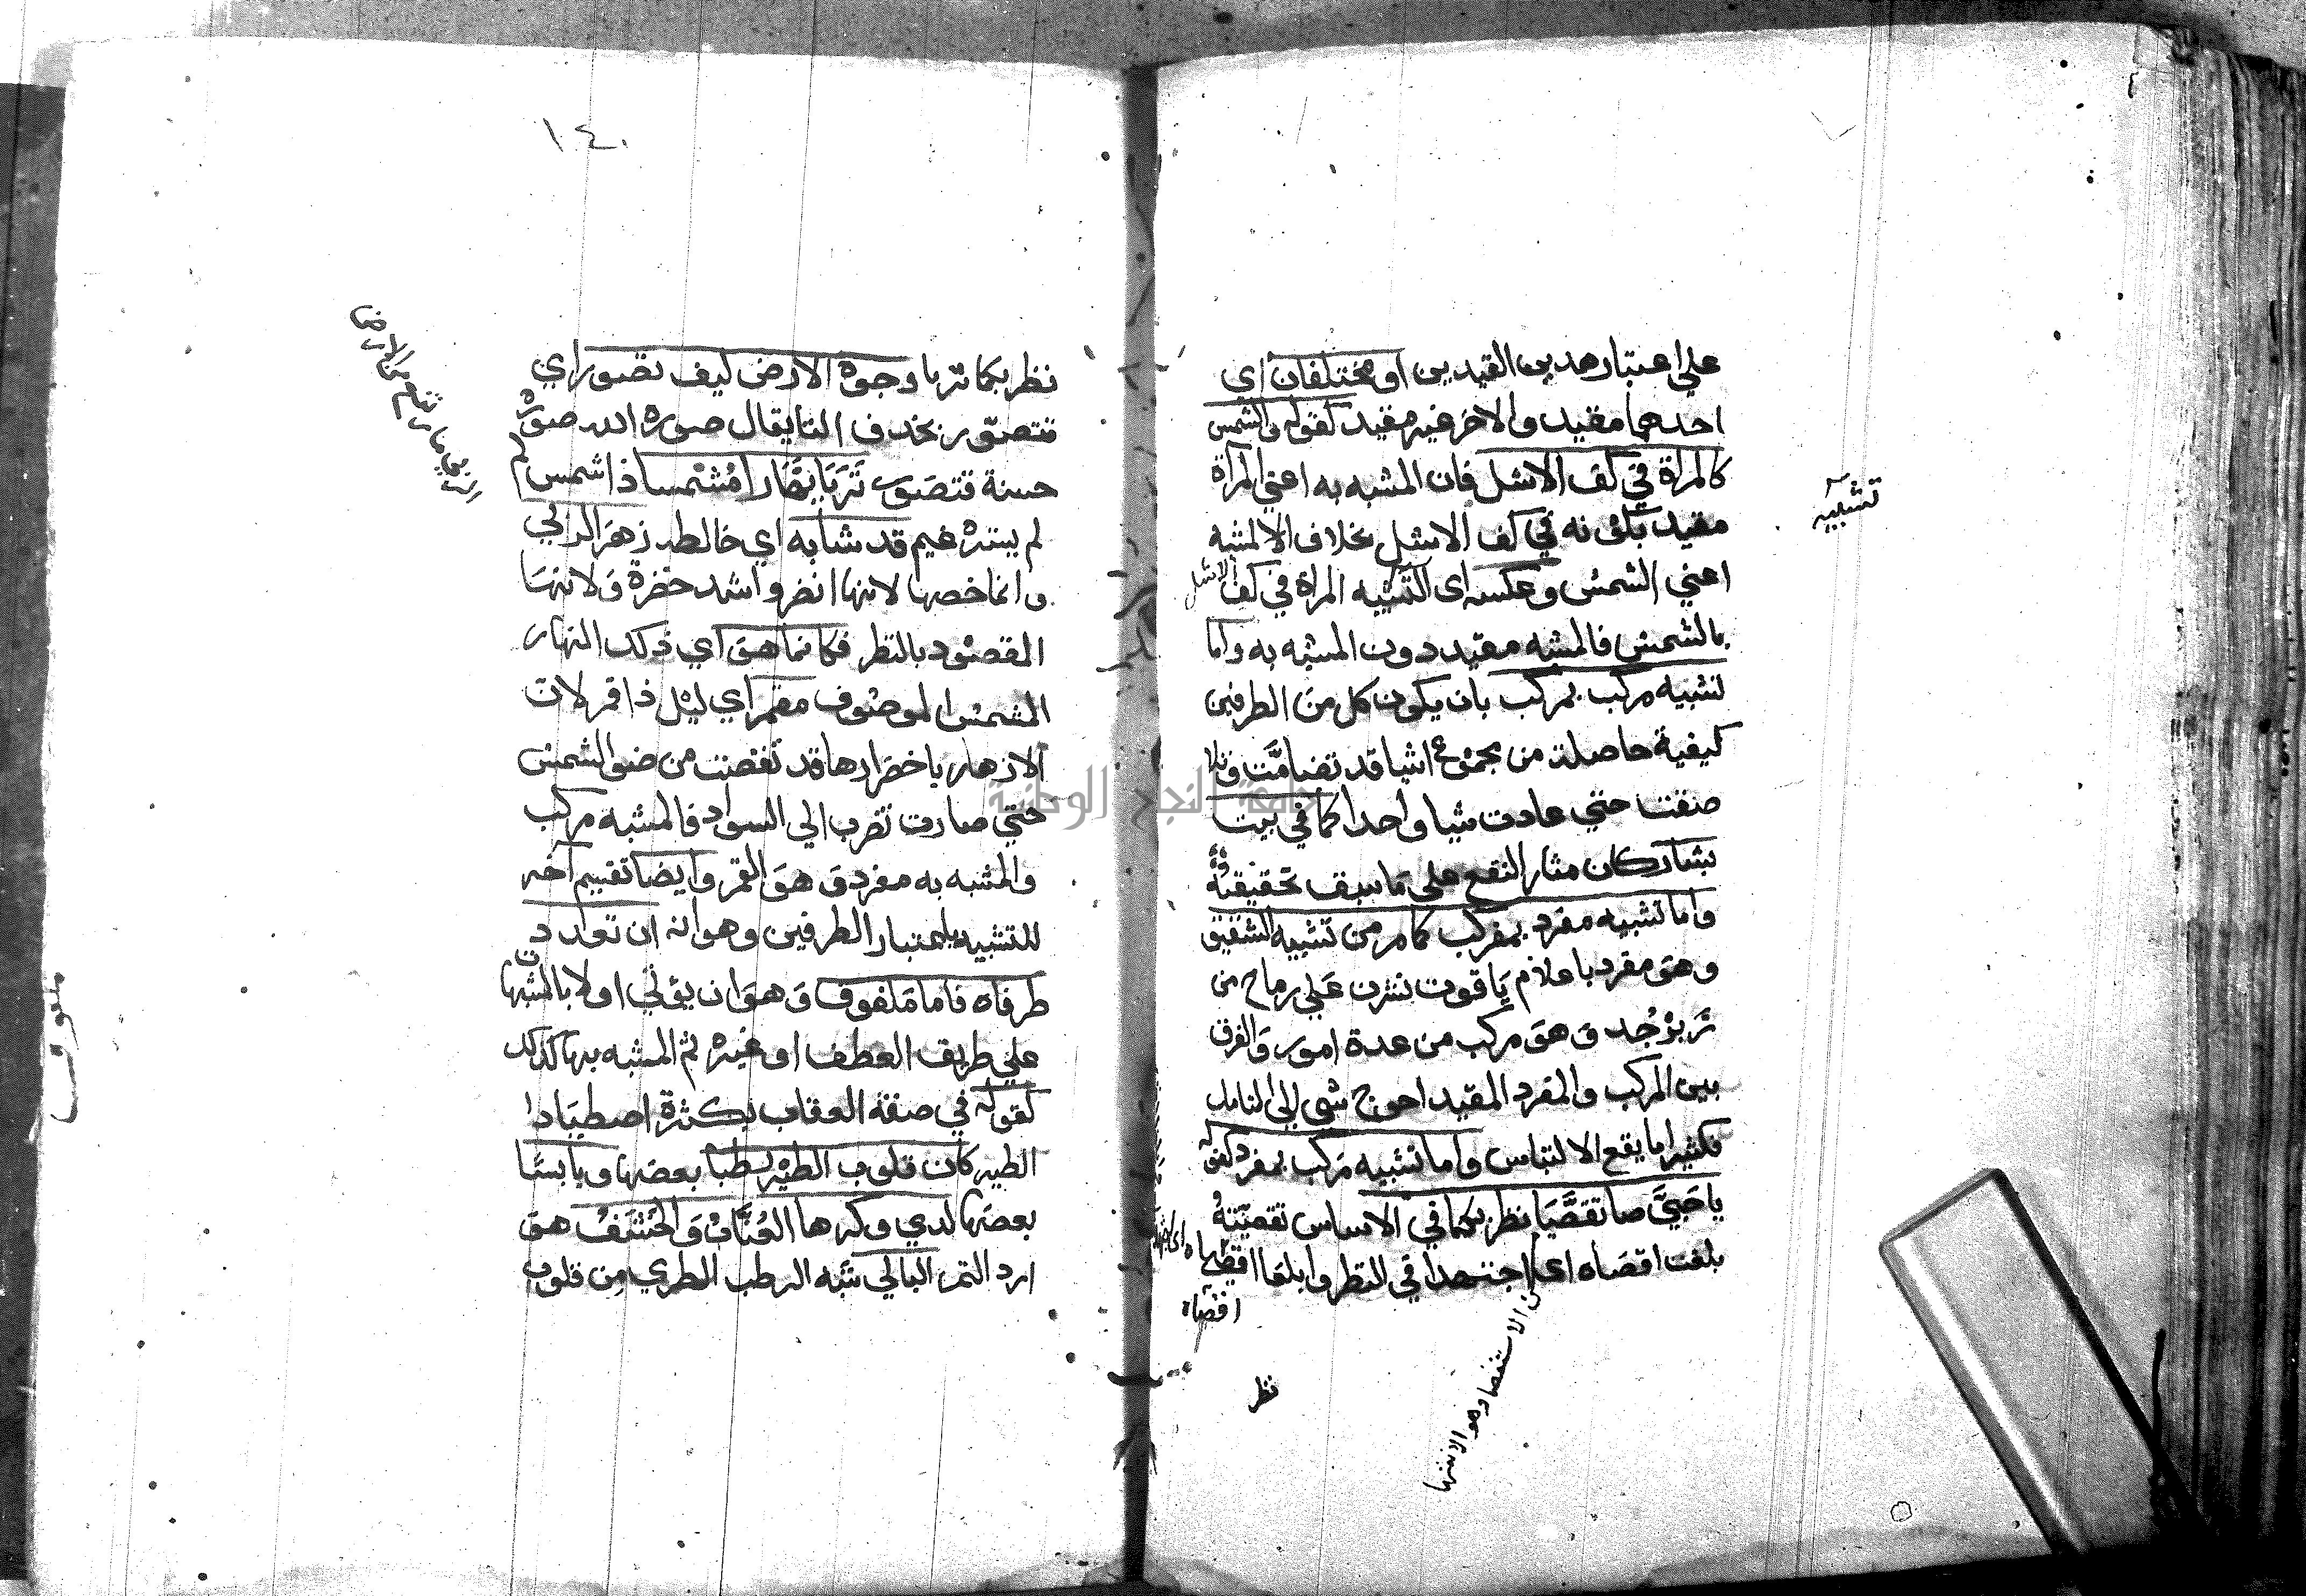 علي اعتبار هدين القيدين او مختلفان اي
احدهما مقيد والاخر غير مقيد كقوله والشمس
كالمراة في كف الاشل فان المشبه به اعني المراة
مقيد بكونه في كف الاشل بخلاف الالمشبه
اعني الشمس وعكسه اى التشبيه المراة في كف الاشل
بالشمس فالمشبه مقيد دون المشبه به واما
تشبيه مركب بمركب بان يكون كل من الطرفين
كيفية حاصلة من مجموع اشيا قد تضامَّت وتلا
صقت حتي عادت شيا واحدا كما في بيت
بشار كان مثار النقع علي ما سبق تحقيقه
واما تشبيه مفرد بمركب كما مر من تشبيه الشقيق
وهو مفرد باعلام ياقوت نشرن علي رماح من
زبرجد وهو مركب من عدة امور والفرق
بين المركب والمفرد المقيد احوج شي الي التامل
فكثيرا ما يقع الالتباس واما تشبيه مركب بمفرد كقوله
يا صاحبيَّ تقصَّيَا نظريكما في الاساس تقصيته
بلغت اقصاه اى اجتهدا في النظر وابلغا اقصى
اقصاه
من الاستقصا وهو الانتها
نظر
تشبيه
١٤٠
نظريكما تريا وجوه الارض كيف تصور اي
تتصور بحذف التا يقال صوره الله صورة
حسنة فتصور تريا نهَارا مُشْمسا ذا شمس
لم يستره غيم قد شابه اي خالطه زهر الربي
وانما خصها لانها انضر واشد خضرة ولانها
المقصود بالنظر فكانما هو اي ذلك النهار
المشمس الموصوف مقمر اي ليل ذا قمر لان
الازهار باخضرارها قد نقصت من ضو الشمس
حتي صارت تقرب الي السواد فالمشبه مركب
والمشبه به مفرد وهو القمر وايضا تقسيم آخر
للتشبيه باعتبار الطرفين وهو انه ان تعدد
طرفاه فاما ملفوف وهو ان يؤتي اولا بالمشبهات
علي طريق العطف او غيره ثم المشبه بها كذلك
كقوله في صفة العقاب بكثرة اصطياد
الطير كان قلوب الطير رطبا بعضها ويابسًا
بعضها لدي وكرها العُنَّابُ وَالحَشَفُ هو
ارد التمر البالي شبه الرطب الطري مِن قلوب
ملفوف